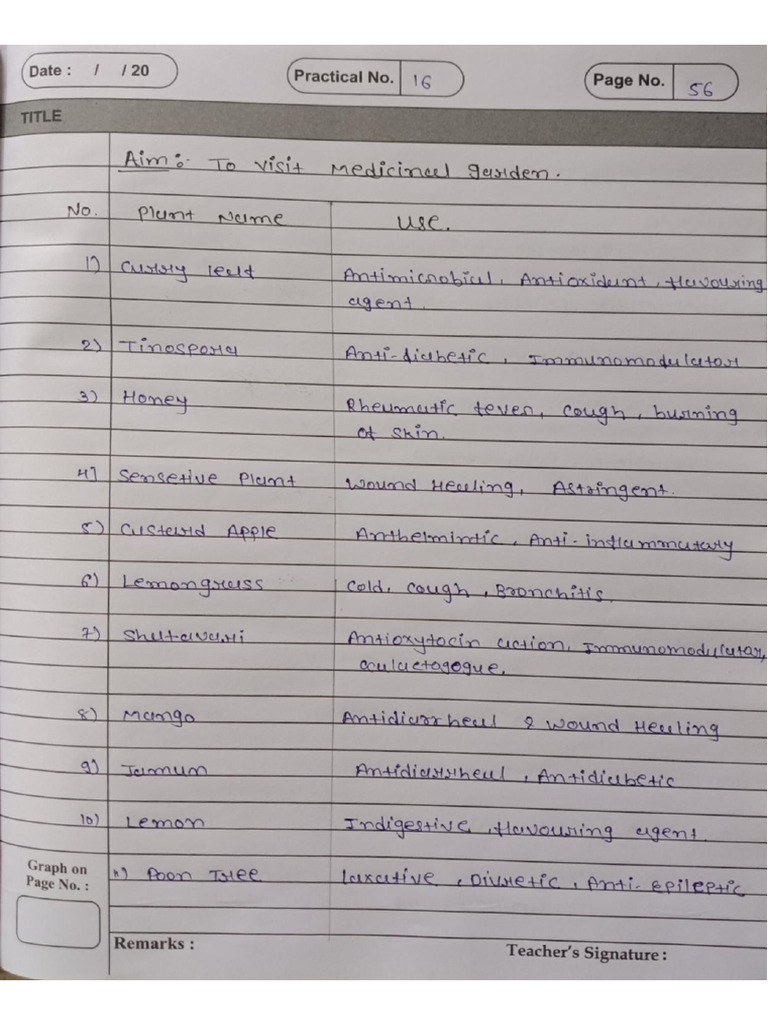 Date : / / 20 Practical No. 16 Page No. 56
TITLE
Aim:- To visit medicinal garden.
No. Plant Name Use.
1) Curry leaf Antimicrobial, Antioxident, flavouring
agent.
2) Tinospora Anti-diabetic, Immunomodulator
3) Honey Rheumatic fever, cough, burning
of skin.
4) Sensetive Plant Wound Healing, Astringent.
5) Custard Apple Anthelmintic, Anti-inflammatary
6) Lemongrass Cold, cough, Bronchitis.
7) Shatavari Antioxytocin action, Immunomodulatar,
Galactagogue.
8) Mango Antidiarrheal & Wound Healing
9) Jamun Antidiarrheal, Antidiabetic
10) Lemon Indigestive, flavouring agent
11) Poon Tree laxative, Diuretic, Anti-Epileptic
Graph on
Page No. :
Remarks : Teacher's Signature :